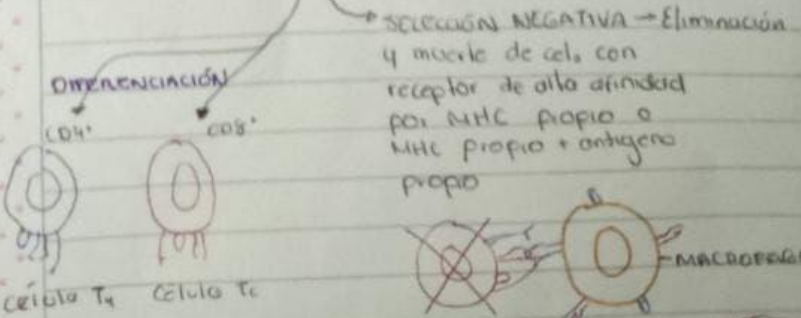 SELECCIÓN NEGATIVA → Eliminación
y muerte de cel. con
receptor de alta afinidad
por MHC propio o
MHC propio + antígeno
propio
DIFERENCIACIÓN
CD4+
CD8+
célula T4
célula Tc